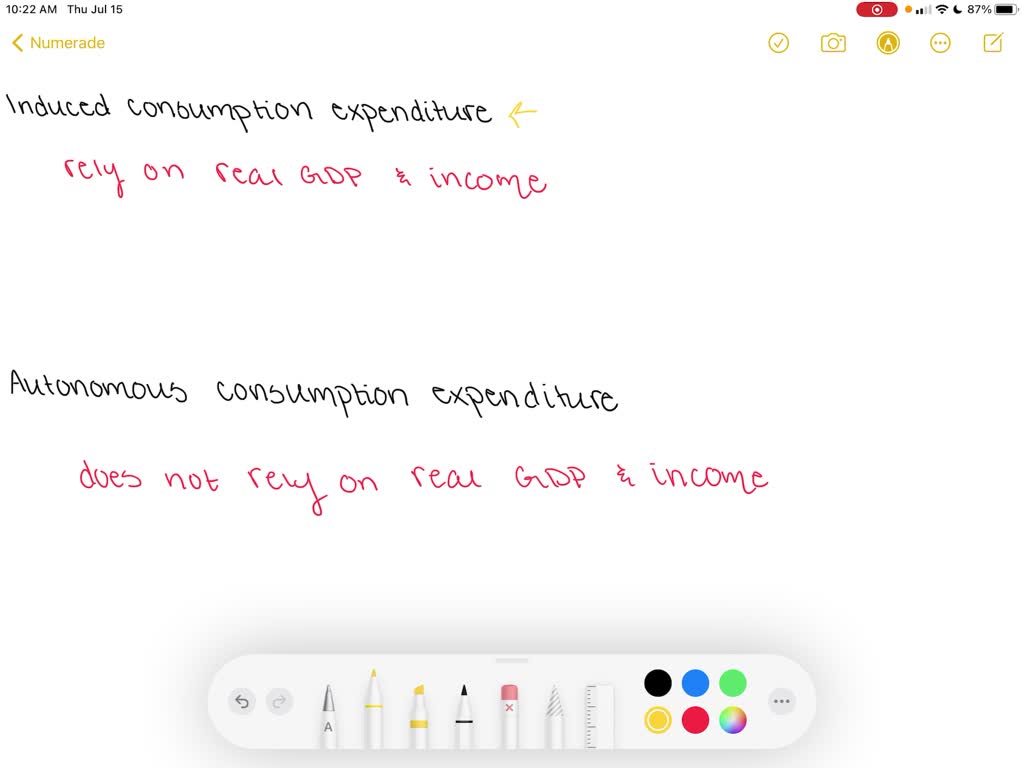 10:22 AM Thu Jul 15 87%
Numerade
Induced consumption expenditure
rely on real GDP & income
Autonomous consumption expenditure
does not rely on real GDP & income
A